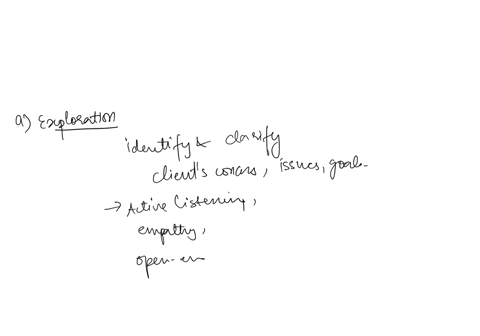 a) Exploration
identify & clarify
client's concerns, issues, goals
→ Active listening,
empathy,
open-en